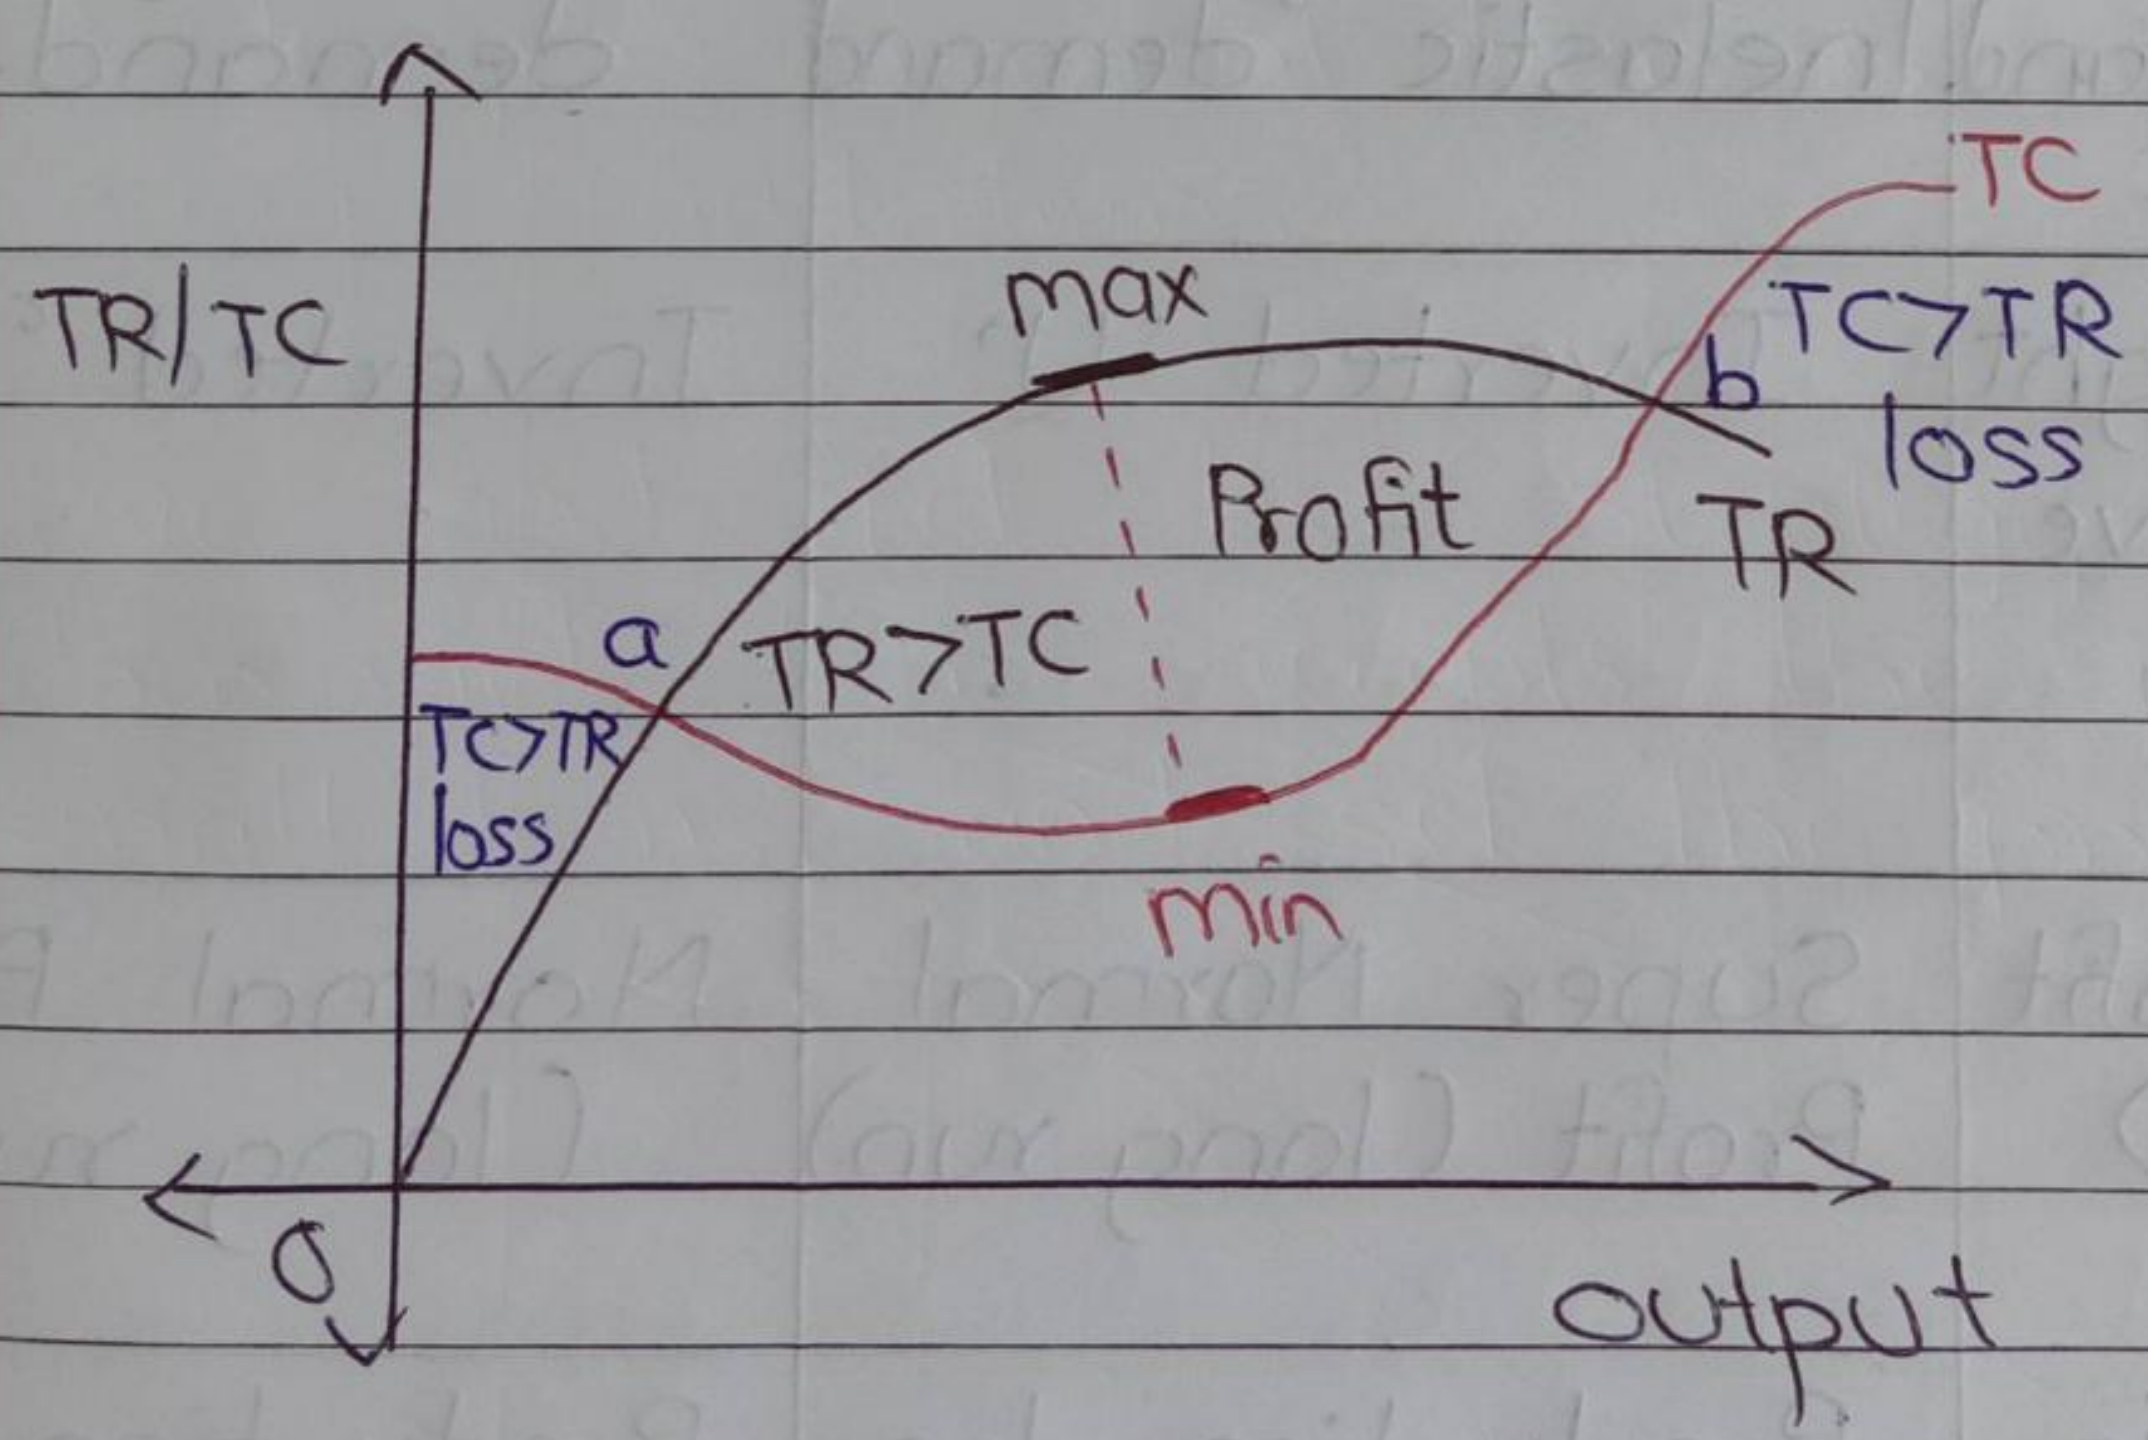 TR/TC
max
TC
TC>TR
b
loss
Profit
TR
a
TR>TC
TC>TR
loss
min
O
output